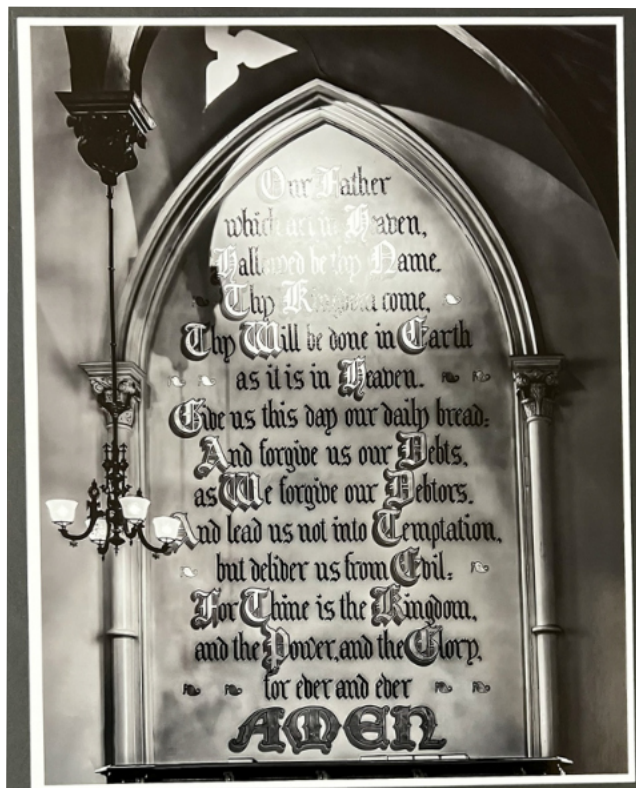 Our Father
which art in Heaven,
Hallowed be thy Name.
Thy Kingdom come,
Thy Will be done in Earth
as it is in Heaven.
Give us this day our daily bread:
And forgive us our Debts,
as We forgive our Debtors.
And lead us not into Temptation,
but deliver us from Evil:
For Thine is the Kingdom,
and the Power, and the Glory,
for ever and ever
AMEN